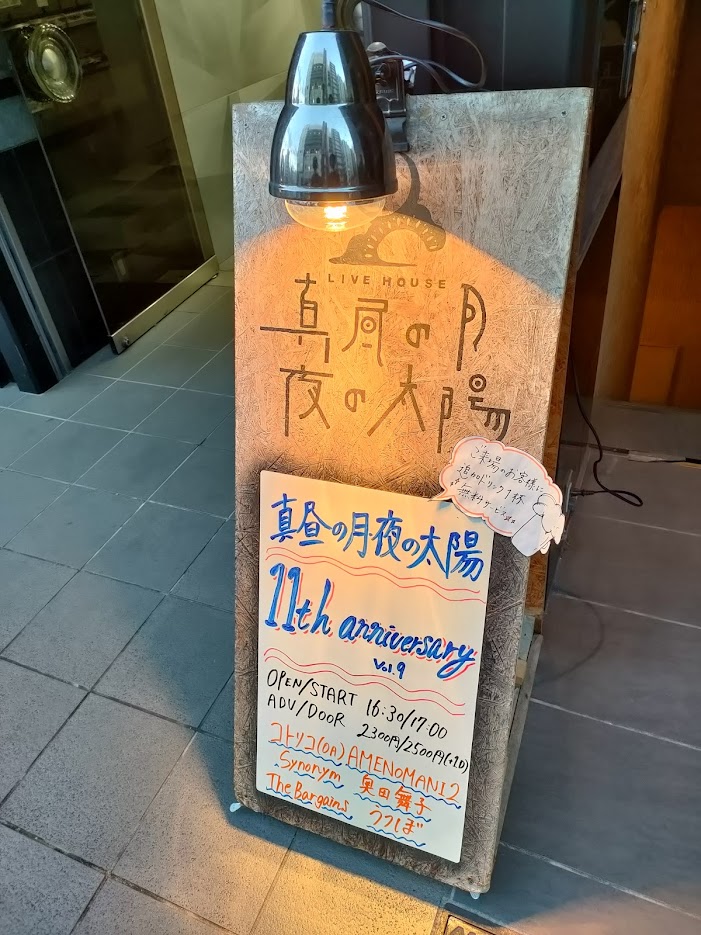 LIVE HOUSE
真昼の月
夜の太陽
ご来場のお客様に
追加ドリンク1杯
無料サービス
真昼の月夜の太陽
11th anniversary
Vol.9
OPEN/START 16:30/17:00
ADV/DOOR 2300円/2500円(+1D)
コトリコ(OA) AMENOMANI2
Synonym 奥田舞子
The Bargains うつしぼ